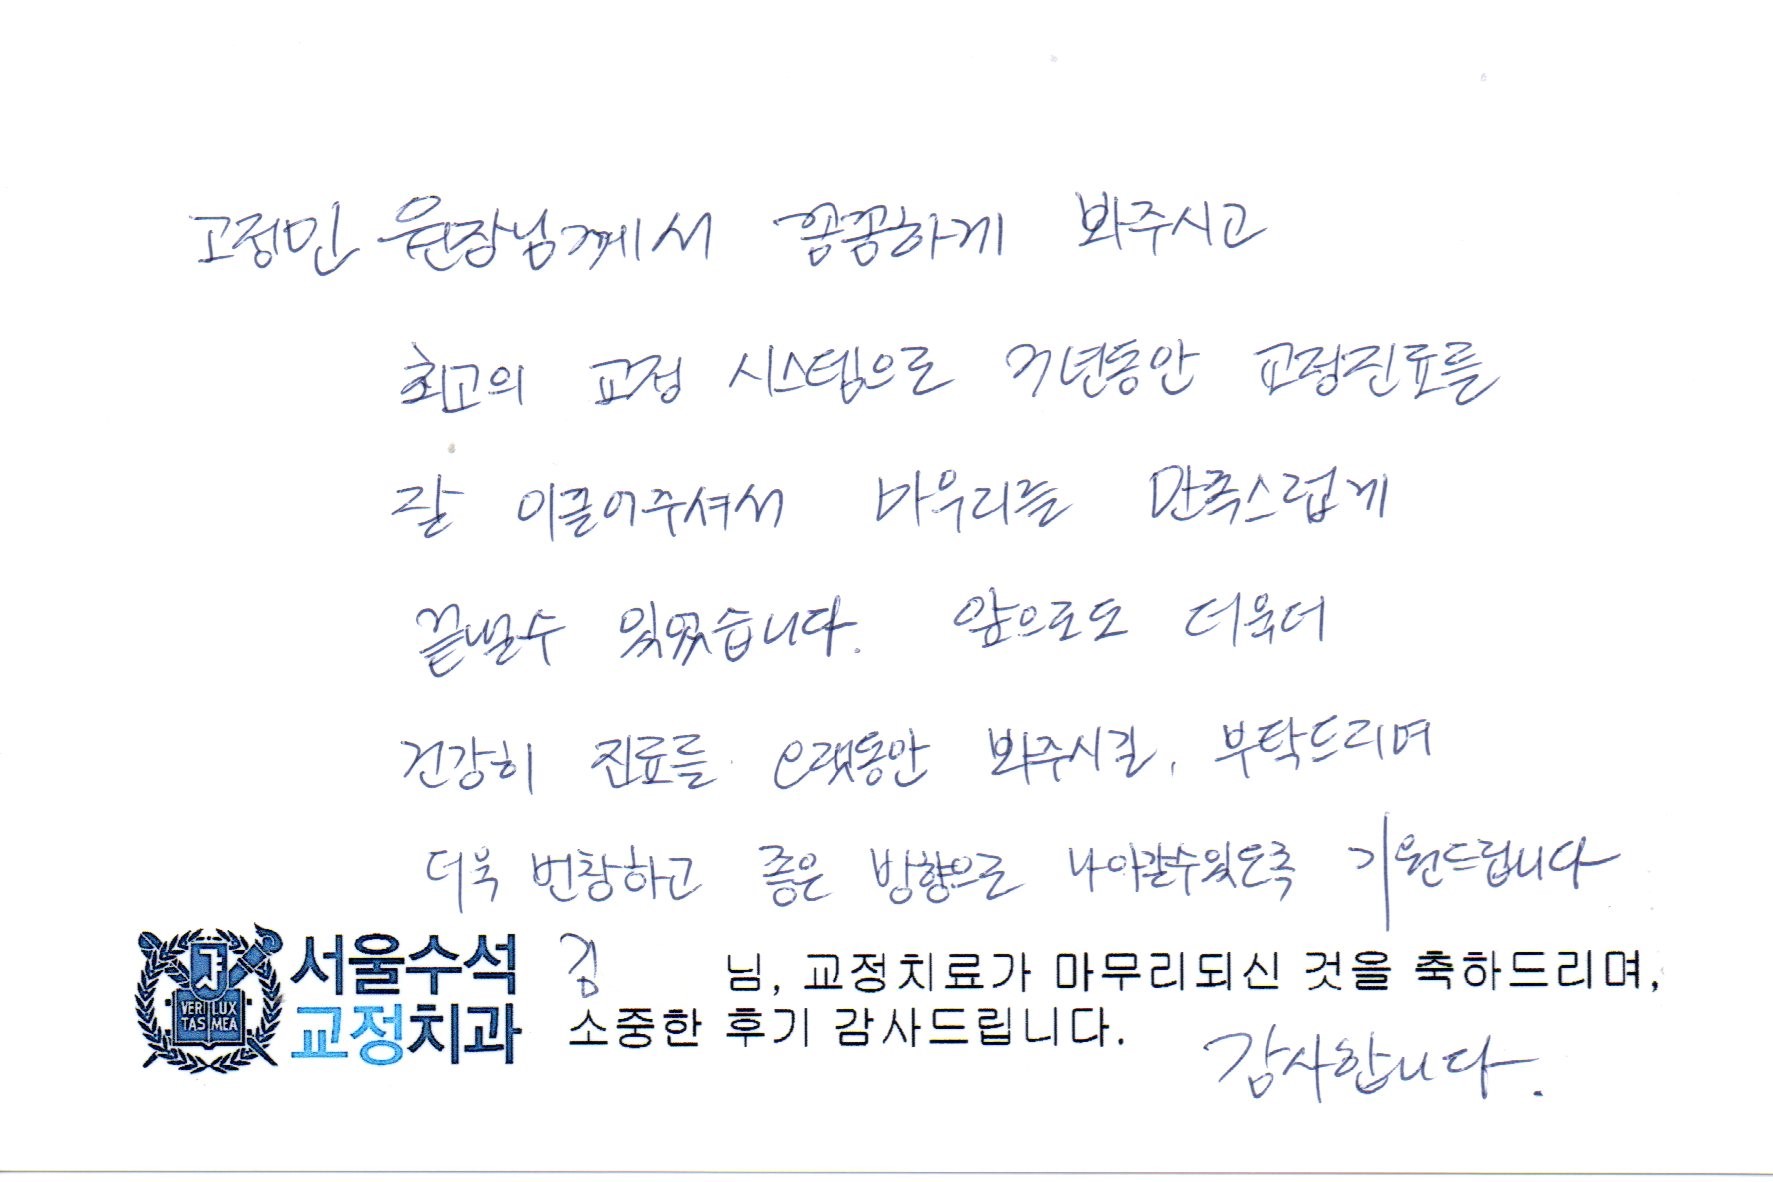 고정민 원장님께서 꼼꼼하게 봐주시고
최고의 교정 시스템으로 거년동안 교정진료를
잘 이끌어주셔서 마우리를 만족스럽게
끝낼수 있었습니다. 앞으로도 더욱더
건강히 진료를 오랫동안 봐주시길, 부탁드리며
더욱 번창하고 좋은 방향으로 나아갈수있도록 기원드립니다
VERI LUX
TAS MEA
서울수석
교정치과
김 님, 교정치료가 마무리되신 것을 축하드리며,
소중한 후기 감사드립니다.
감사합니다.